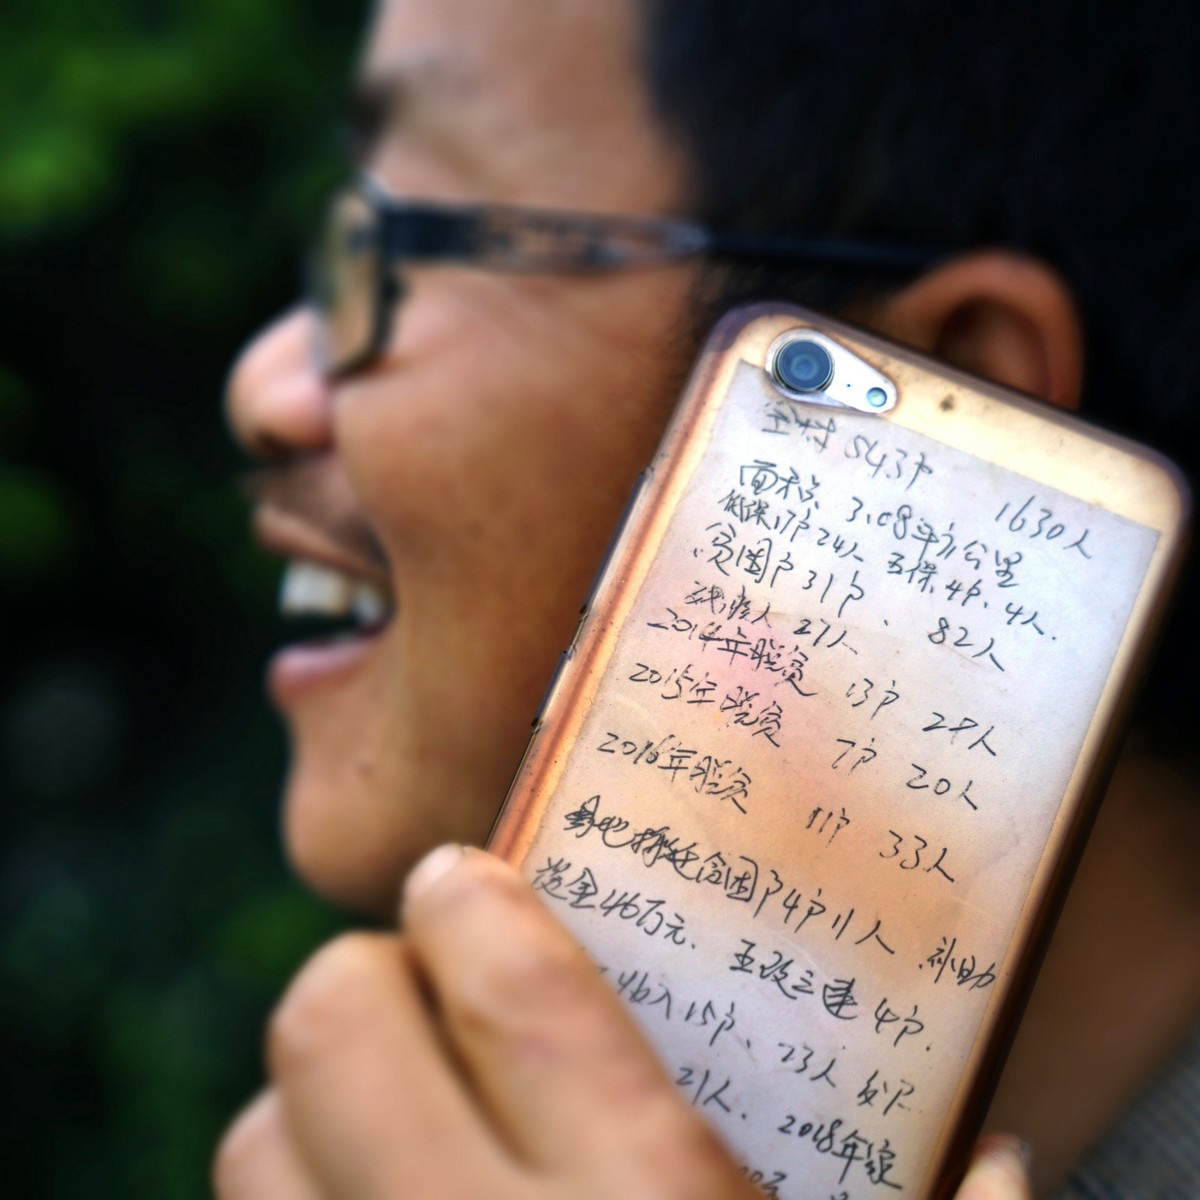 全村543户 1630人
面积 3.08平方公里
低保17户24人 五保4户、4人.
贫困户31户、82人
残疾人27人
2014年脱贫 13户 29人
2015年脱贫 7户 20人
2016年脱贫 11户 33人
易地搬迁贫困户4户11人 补助
资金46万元. 五改三建 4户.
入15户、23人
21人、2018年家